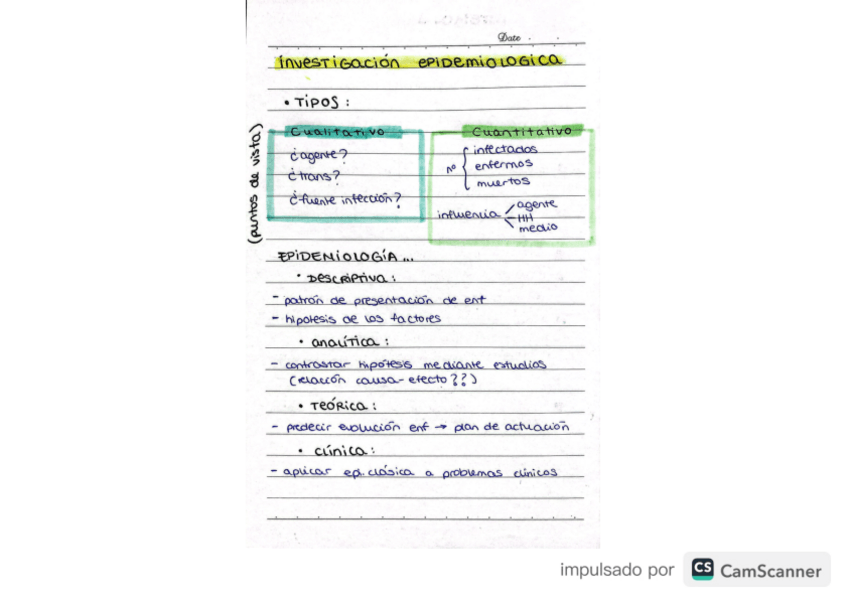 Date
Investigación epidemiologica
• Tipos:
(puntos de vista)
Cualitativo
¿agente?
¿trans?
¿fuente infección?
Cuantitativo
nº { infectados
enfermos
muertos
influencia agente
HH
medio
Epidemiología...
• Descriptiva:
- patrón de presentación de enf
- hipotesis de los factores
• analítica:
- contrastar hipótesis mediante estudios
(relación causa-efecto??)
• Teórica:
- predecir evolución enf → plan de actuación
• clínica:
- aplicar ep. clásica a problemas clínicos
impulsado por CS CamScanner